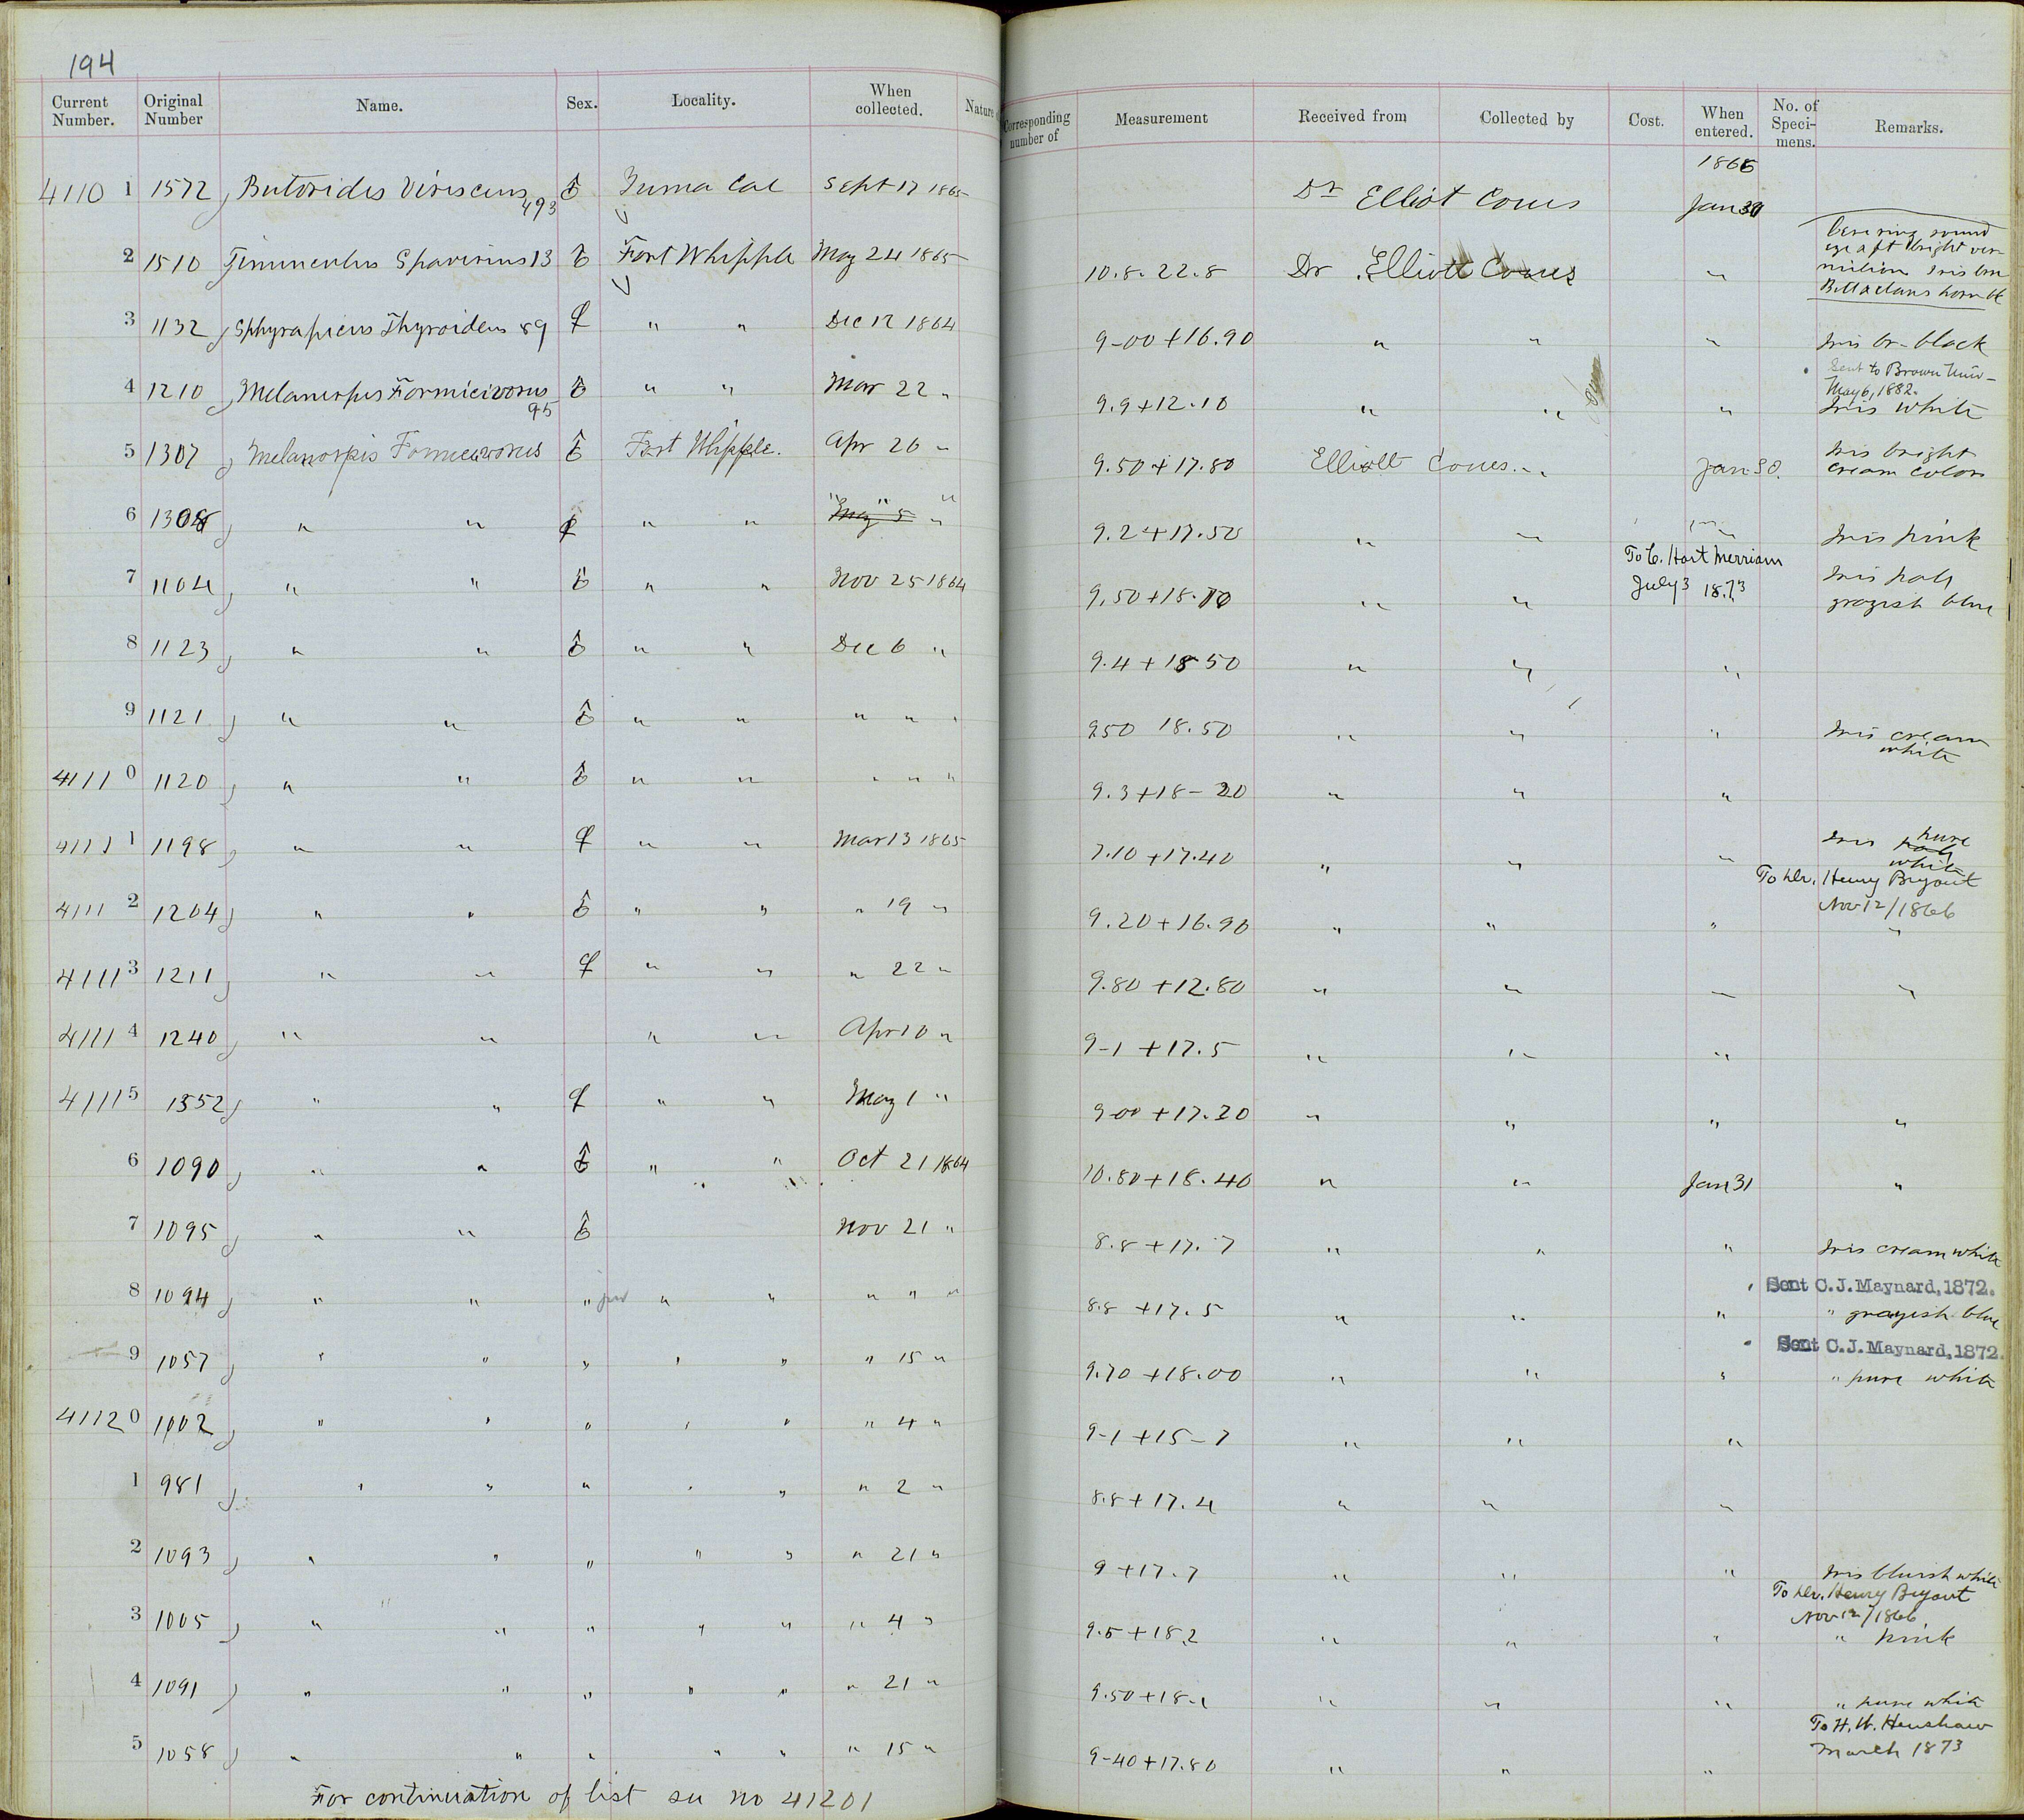 194
Current Number. Original Number Name. Sex. Locality. When collected. Nature Corresponding number of Measurement Received from Collected by Cost. When entered. No. of Speci-mens. Remarks.
1866
4110 1 1572 Butorides Virescens 493 ♂ Yuma Cal Sept 17 1865 Dr Elliot Coues Jan 30
2 1510 Tinnunculus Sparverius 13 ♂ Fort Whipple May 24 1865 10.8. 22.8 Dr. Elliott Coues " Cere ring round eye & ft bright ver-milion Iris brn Bill & claws horn bl
3 1132 Sphyrapicus Thyroideus 89 ♀ " " Dec 12 1864 9-00+16.90 " " " Iris br-black
Sent to Brown Univ-
May 6, 1882.
4 1210 Melanerpes Formicivorus 95 ♂ " " Mar 22 " 9.9+12.10 " " " Iris white
5 1307 Melanerpes Formicivorus ♂ Fort Whipple. Apr 26 " 9.50+17.80 Elliott Coues. " Jan 30. Iris bright cream color
6 1308 " " ♀ " " May 5 " 9.2+17.50 " " " Iris pink
To C. Hart Merriam
July 3 1873
7 1104 " " ♂ " " Nov 25 1864 9.50+18.10 " " Iris pale grayish blue
8 1123 " " ♂ " " Dec 6 " 9.4+18 50 " " "
9 1121 " " ♂ " " " " " 950 18.50 " " " Iris cream white
4111 0 1120 " " ♂ " " " " " 9.3+18-20 " " "
4111 1 1198 " " ♀ " " Mar 13 1865 7.10+17.40 " " " Iris pale pure white
To Dr. Henry Bryant
Nov 12/1866
4111 2 1204 " " ♂ " " " 19 " 9.20+16.90 " " " "
4111 3 1211 " " ♀ " " " 22 " 9.80+12.80 " " " "
4111 4 1240 " " " " Apr 10 " 9-1+17.5 " " "
4111 5 1352 " " ♀ " " May 1 " 9 00+17.20 " " " "
6 1090 " " ♂ " " Oct 21 1864 10.80+18.40 " " Jan 31 "
7 1095 " " ♂ Nov 21 " 8.8+17.7 " " " Iris cream white
Sent C.J. Maynard, 1872.
8 1094 " " " juv " " " " " 8.8+17.5 " " " " grayish blue
Sent C.J. Maynard, 1872.
9 1057 " " " " " " 15 " 9.70+18.00 " " " " pure white
4112 0 1002 " " " " " " 4 " 9-1+15-7 " " "
1 981 " " " " " " 2 " 8.8+17.4 " " "
2 1093 " " " " " " 21 " 9+17.7 " " " Iris bluish white
To Dr. Henry Bryant
Nov 12/1866
3 1005 " " " " " " 4 " 9.5+18.2 " " " " pink
4 1091 " " " " " " 21 " 9.50+18.1 " " " " pure white
To H. W. Henshaw
March 1873
5 1058 " " " " " " 15 " 9-40+17.80 " " "
For continuation of list see no 41201